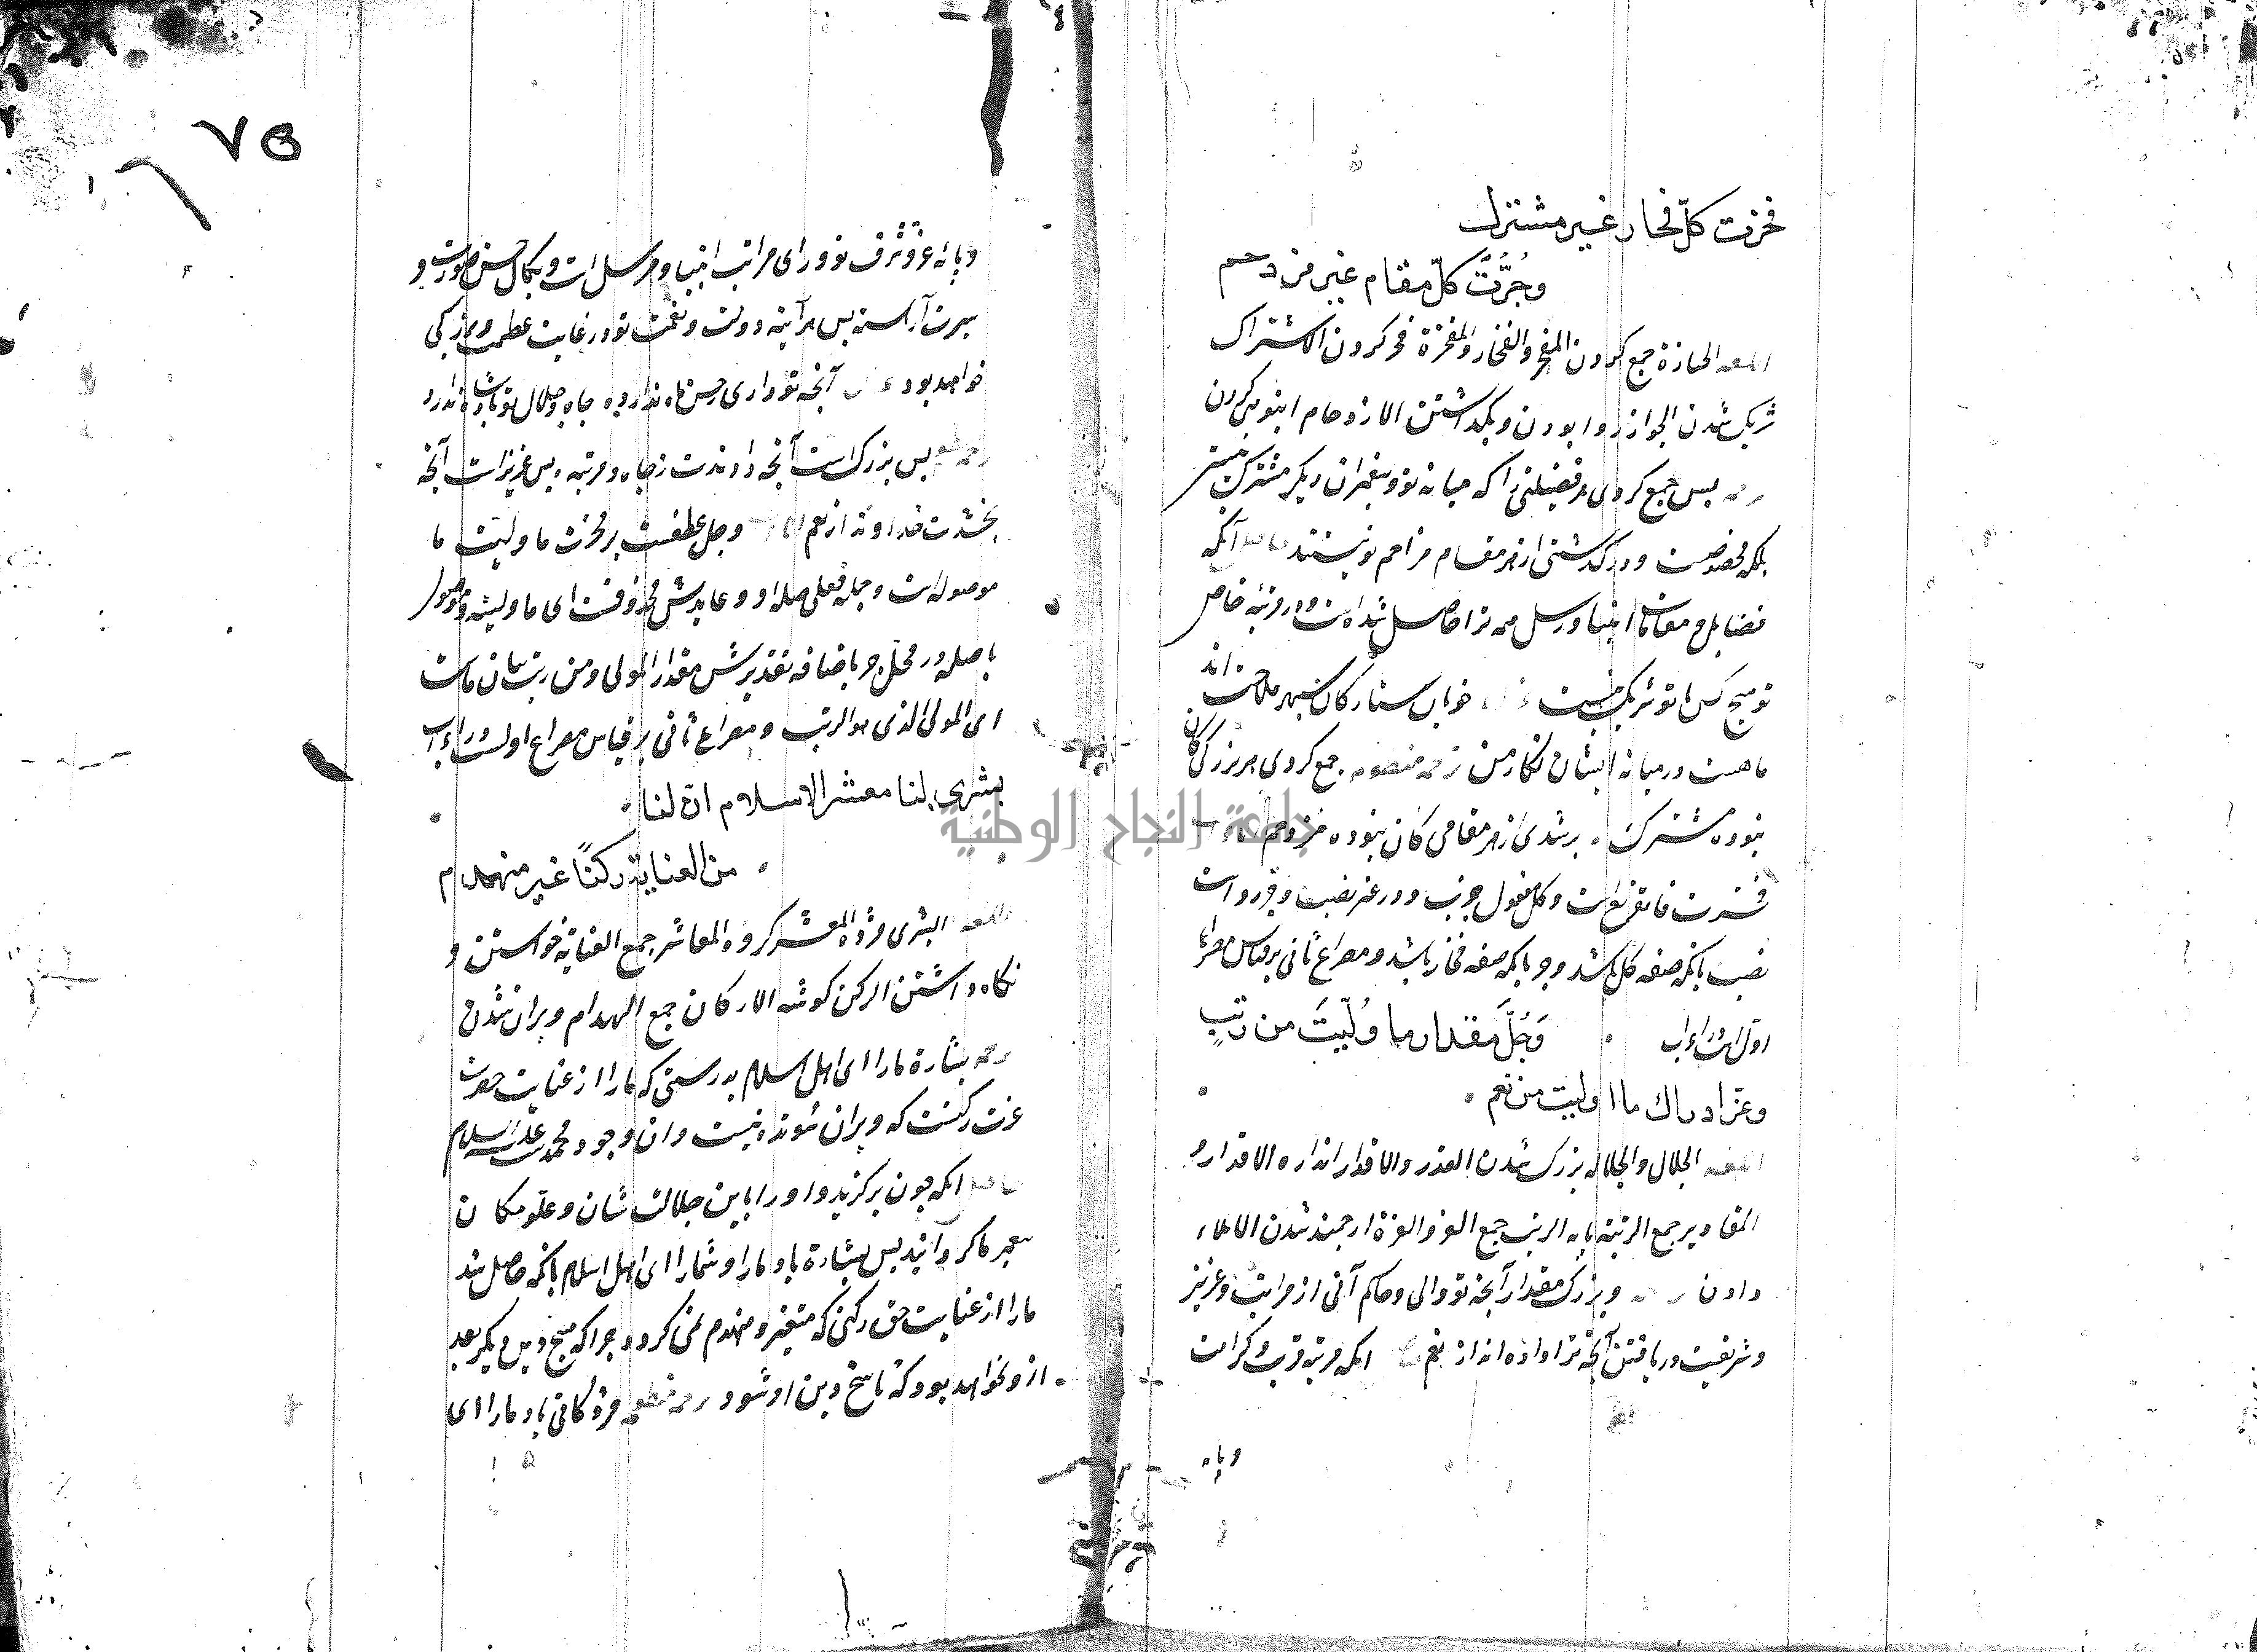 فحزت كلّ فخار غير مشترك
وجُزتَ كلّ مقام غير مزدحم
اللغه الحیازة جمع کردن المفخر والفخار والمفخرة فخر کردن الاشتراك
شریک شدن الجواز روا بودن وبگذاشتن الازدحام انبوهی کردن
پس جمع کردی هر فضیلتی را که میانه تو و پیغمبران دیگر مشترک نیست
بلکه مخصوصست و درگذشتی از هر مقام مزاحم تو نیستند حاصل آنکه
فضایل و مقامات انبیا و رسل همه ترا حاصل شده است و در مرتبه خاص
تو هیچ کس با تو شریک نیست خوبان ستارگان سپهر ملاحت اند
ماهست در میانه ایشان نگار من ترجمه منظومه جمع کردی هر بزرگی کان
نبوده مشترک برشدی از هر مقامی کان نبوده مزدحم
فحزت فا تفریع است و کل مفعول حزت و در غیر نصب و جر رواست
نصب بانکه صفه کل باشد و جر بانکه صفه فخار باشد و مصراع ثانی بر قیاس مصراع
اول است در اعراب وَجَلَّ مقدار ما وُلّيتَ من رتبٍ
وعزّ ادراك ما اوليت من نعم
اللغه الجلال والجلاله بزرگ شدن القدر والاقدار اندازه الاقدار و
المقادیر جمع الرتبة پایه الرتب جمع العز والعزة ارجمند شدن الایلاء
دادن و بزرگ مقدار آنچه تو والی و حاکم آنی از مراتب و عزیز
و شریفست دریافتن آنچه ترا داده اند از نعم انکه مرتبه قرب و کرامت
و پایه
۷۵
و پایه عز و شرف تو ورای مراتب انبیا و مرسل است و بکمال حسن صورت و
سیرت آراسته پس هر آینه دولت و نعمت تو در غایت عظمت و بزرگی
خواهد بود آنچه تو داری ز حسن ماه ندارد جاه و جلال تو پادشاه ندارد
پس بزرگ است آنچه دادندت ز جاه و مرتبه پس عزیز است آنچه
بخشدت خداوند از نعم وجل عطفست بر فحزت ما ولیت ما
موصوله است و جمله فعلی صله او و عایدش محذوفست ای ما ولیته و موصول
با صله در محل جر باضافه تقدیرش مقدار المولی و من رتب بیان ماست
ای المولی الذی هو الرتب و مصراع ثانی بر قیاس مصراع اول است در اعراب
بشرى لنا معشر الاسلام انّ لنا
من العناية ركنًا غير منهدم
اللغه البشری مژده المعشر گروه المعاشر جمع العنایة خواستن و
نگاه داشتن الرکن گوشه الارکان جمع الهدام ویران شدن
بشارة ما را ای اهل اسلام بدرستی که ما را از عنایت حضرت
عزت رکنیست که ویران شونده نیست و ان وجود محمد است علیه السلام
حاصل انکه چون برگزید او را باین جلالت شان و علو مکان
پیغمبر ما گردانید پس بشارة باد ما را و شما را ای اهل اسلام بانکه حاصل شد
ما را از عنایت حق رکنی که متغیر و منهدم نمی گردد چرا که هیچ دین دیگر بعد
از و نخواهد بود که ناسخ دین او شود ترجمه منظومه مژدگانی باد ما را ای
جامعة النجاح الوطنية